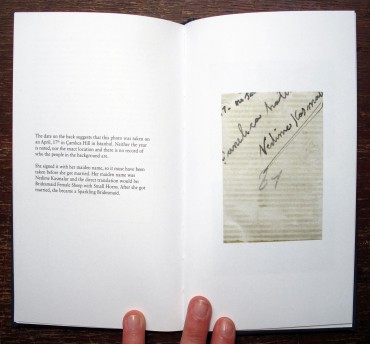 The date on the back suggests that this photo was taken on
an April, 17th in Çamlıca Hill in Istanbul. Neither the year
is noted, nor the exact location and there is no record of
who the people in the background are.
She signed it with her maiden name, so it must have been
taken before she got married. Her maiden name was
Nedima and the direct translation would be
Bridesmaid Female Sheep with Small Horns. After she got
married, she became a Sparkling Bridesmaid.